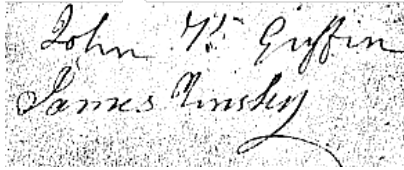 John T. Griffin
James Tinsley